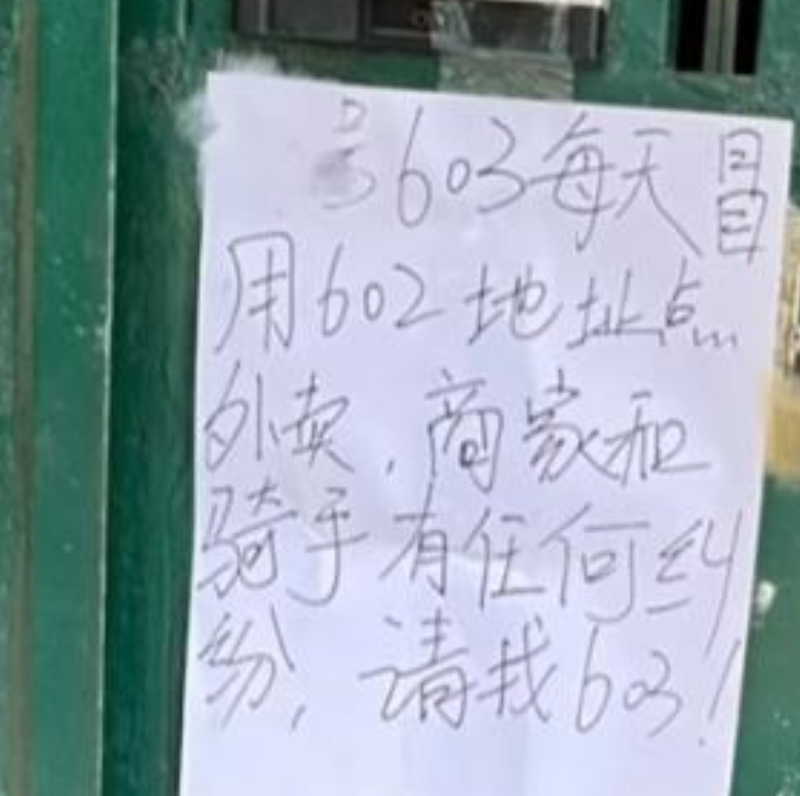 603每天冒
用602地址点
外卖，商家和
骑手有任何纠
纷，请找603！